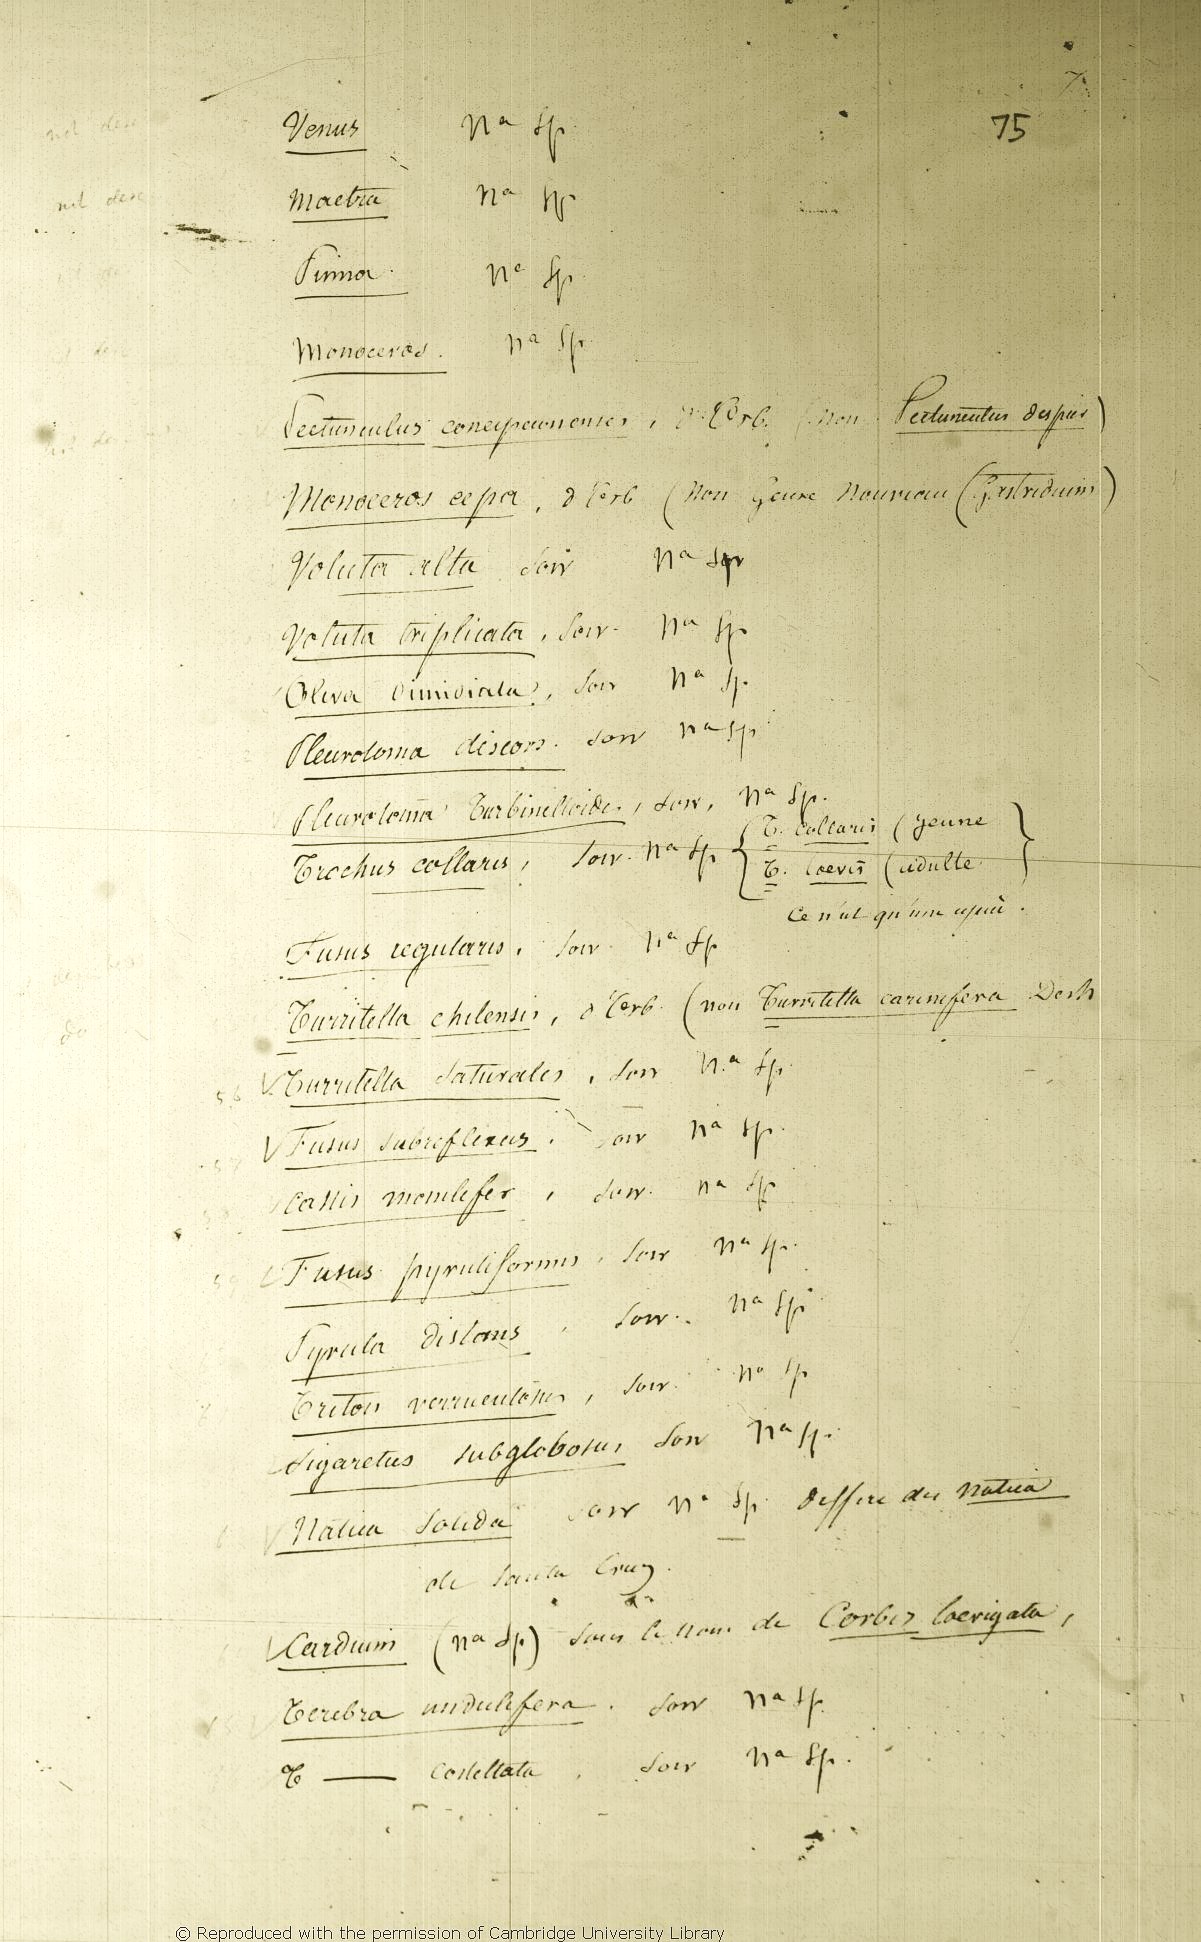 75
nil desc Venus na sp.
nil desc Mactra na sp
Pinna. na sp.
desc Monoceros. na sp.
Pectunculus concepcionensis, d'Orb. (non Pectunculus dispar)
Monoceros cepa, d'Orb (non Genre nouveau (Gastridium)
Voluta alta Sow na sp
Voluta triplicata, Sow. na sp
Oliva dimidiata, Sow na sp.
Pleurotoma discors. Sow na sp
Pleurotoma Turbinelloides, Sow, na sp.
Trochus collaris, Sow. na sp { T. collaris (jeune }
{ T. laevis (adulte. }
Ce n'est qu'une espèce.
Fusus regularis, Sow na sp
Turritella chilensis, d'Orb. (non Turritella carinifera Desh
do
56 V Turritella suturalis, Sow na sp.
57 V Fusus subreflexus. Sow na sp.
Cassis monilifer, Sow. na sp
59 V Fusus pyruliformis, Sow na sp.
Pyrula distans, Sow. na sp
Triton verruculosus, Sow. na sp
Sigaretus subglobosus Sow na sp.
V Natica solida Sow na sp. differe des Natica
de Santa Cruz.
V Cardium (na sp) sous le nom de Corbis laevigata,
Terebra undulifera. Sow na sp.
T —— costellata. Sow na sp.
© Reproduced with the permission of Cambridge University Library